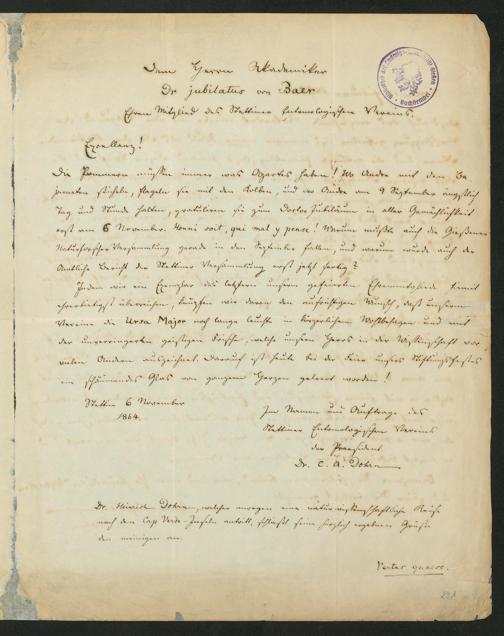 Dem Herrn Akademiker
Dr jubilatus von Baer
Ehren Mitglied des Stettiner Entomologischen Vereins.
Excellenz!
Die Pommern müssen immer was Appartes haben! Wo Andre mit den
sticheln, flegeln sie mit den Kolben, und wo Andre am 9 September ängstlich
Tag und Stunde halten, gratuliren sie zum Doctor Jubiläum in aller Gemüthlichkeit
erst am 6 November. Honni soit, qui mal y pense! Warum mußte auch die Gießener
Naturforscher Versammlung gerade in den September fallen, und warum wurde auch der
Amtliche Bericht der Stettiner Versammlung erst jetzt fertig?
Indem wir ein Exemplar des letztern unserm gefeierten Ehrenmitgliede hiemit
ehrerbietigst überreichen, knüpfen wir daran den aufrichtigen Wunsch, daß unserm
Vereine die Ursa Major noch lange leuchte in körperlichem Wohlbehagen und mit
der unverringerten geistigen Frische, welche unsern Heros in der Wissenschaft vor
vielen Andern auszeichnet. Darauf ist heute bei der Feier unsres Stiftungsfestes
ein schäumendes Glas von ganzem Herzen geleert worden!
Stettin 6 November
1864.
Im Namen und Auftrage des
Stettiner Entomologischen Vereins
der Praesident
Dr. C. A. Dohrn
Dr. Heinrich Dohrn, welcher morgen eine naturwissenschaftliche Reise
nach den Cap Verde-Inseln antritt, schließt seine herzlich ergebenen Grüße
den meinigen an.
Vertas quaeso.
221